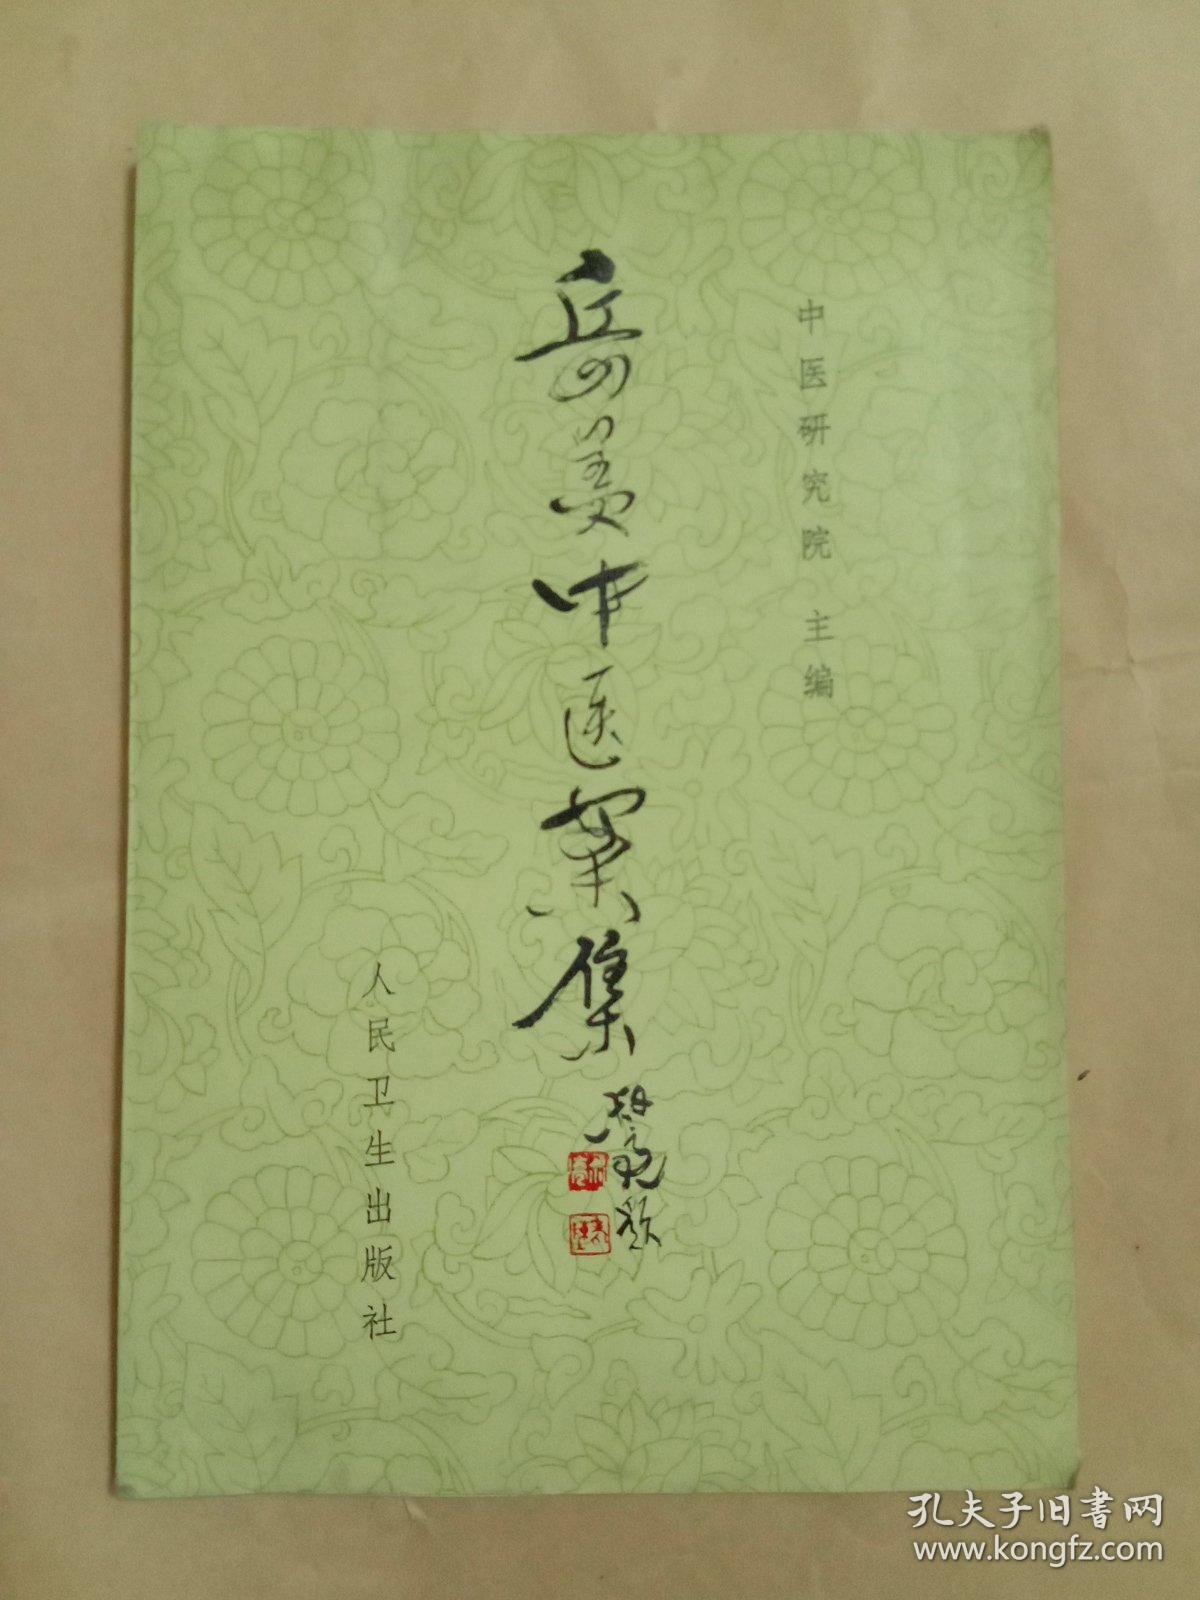 中医研究院 主编
岳美中医案集
人民卫生出版社
孔夫子旧书网
www.kongfz.com